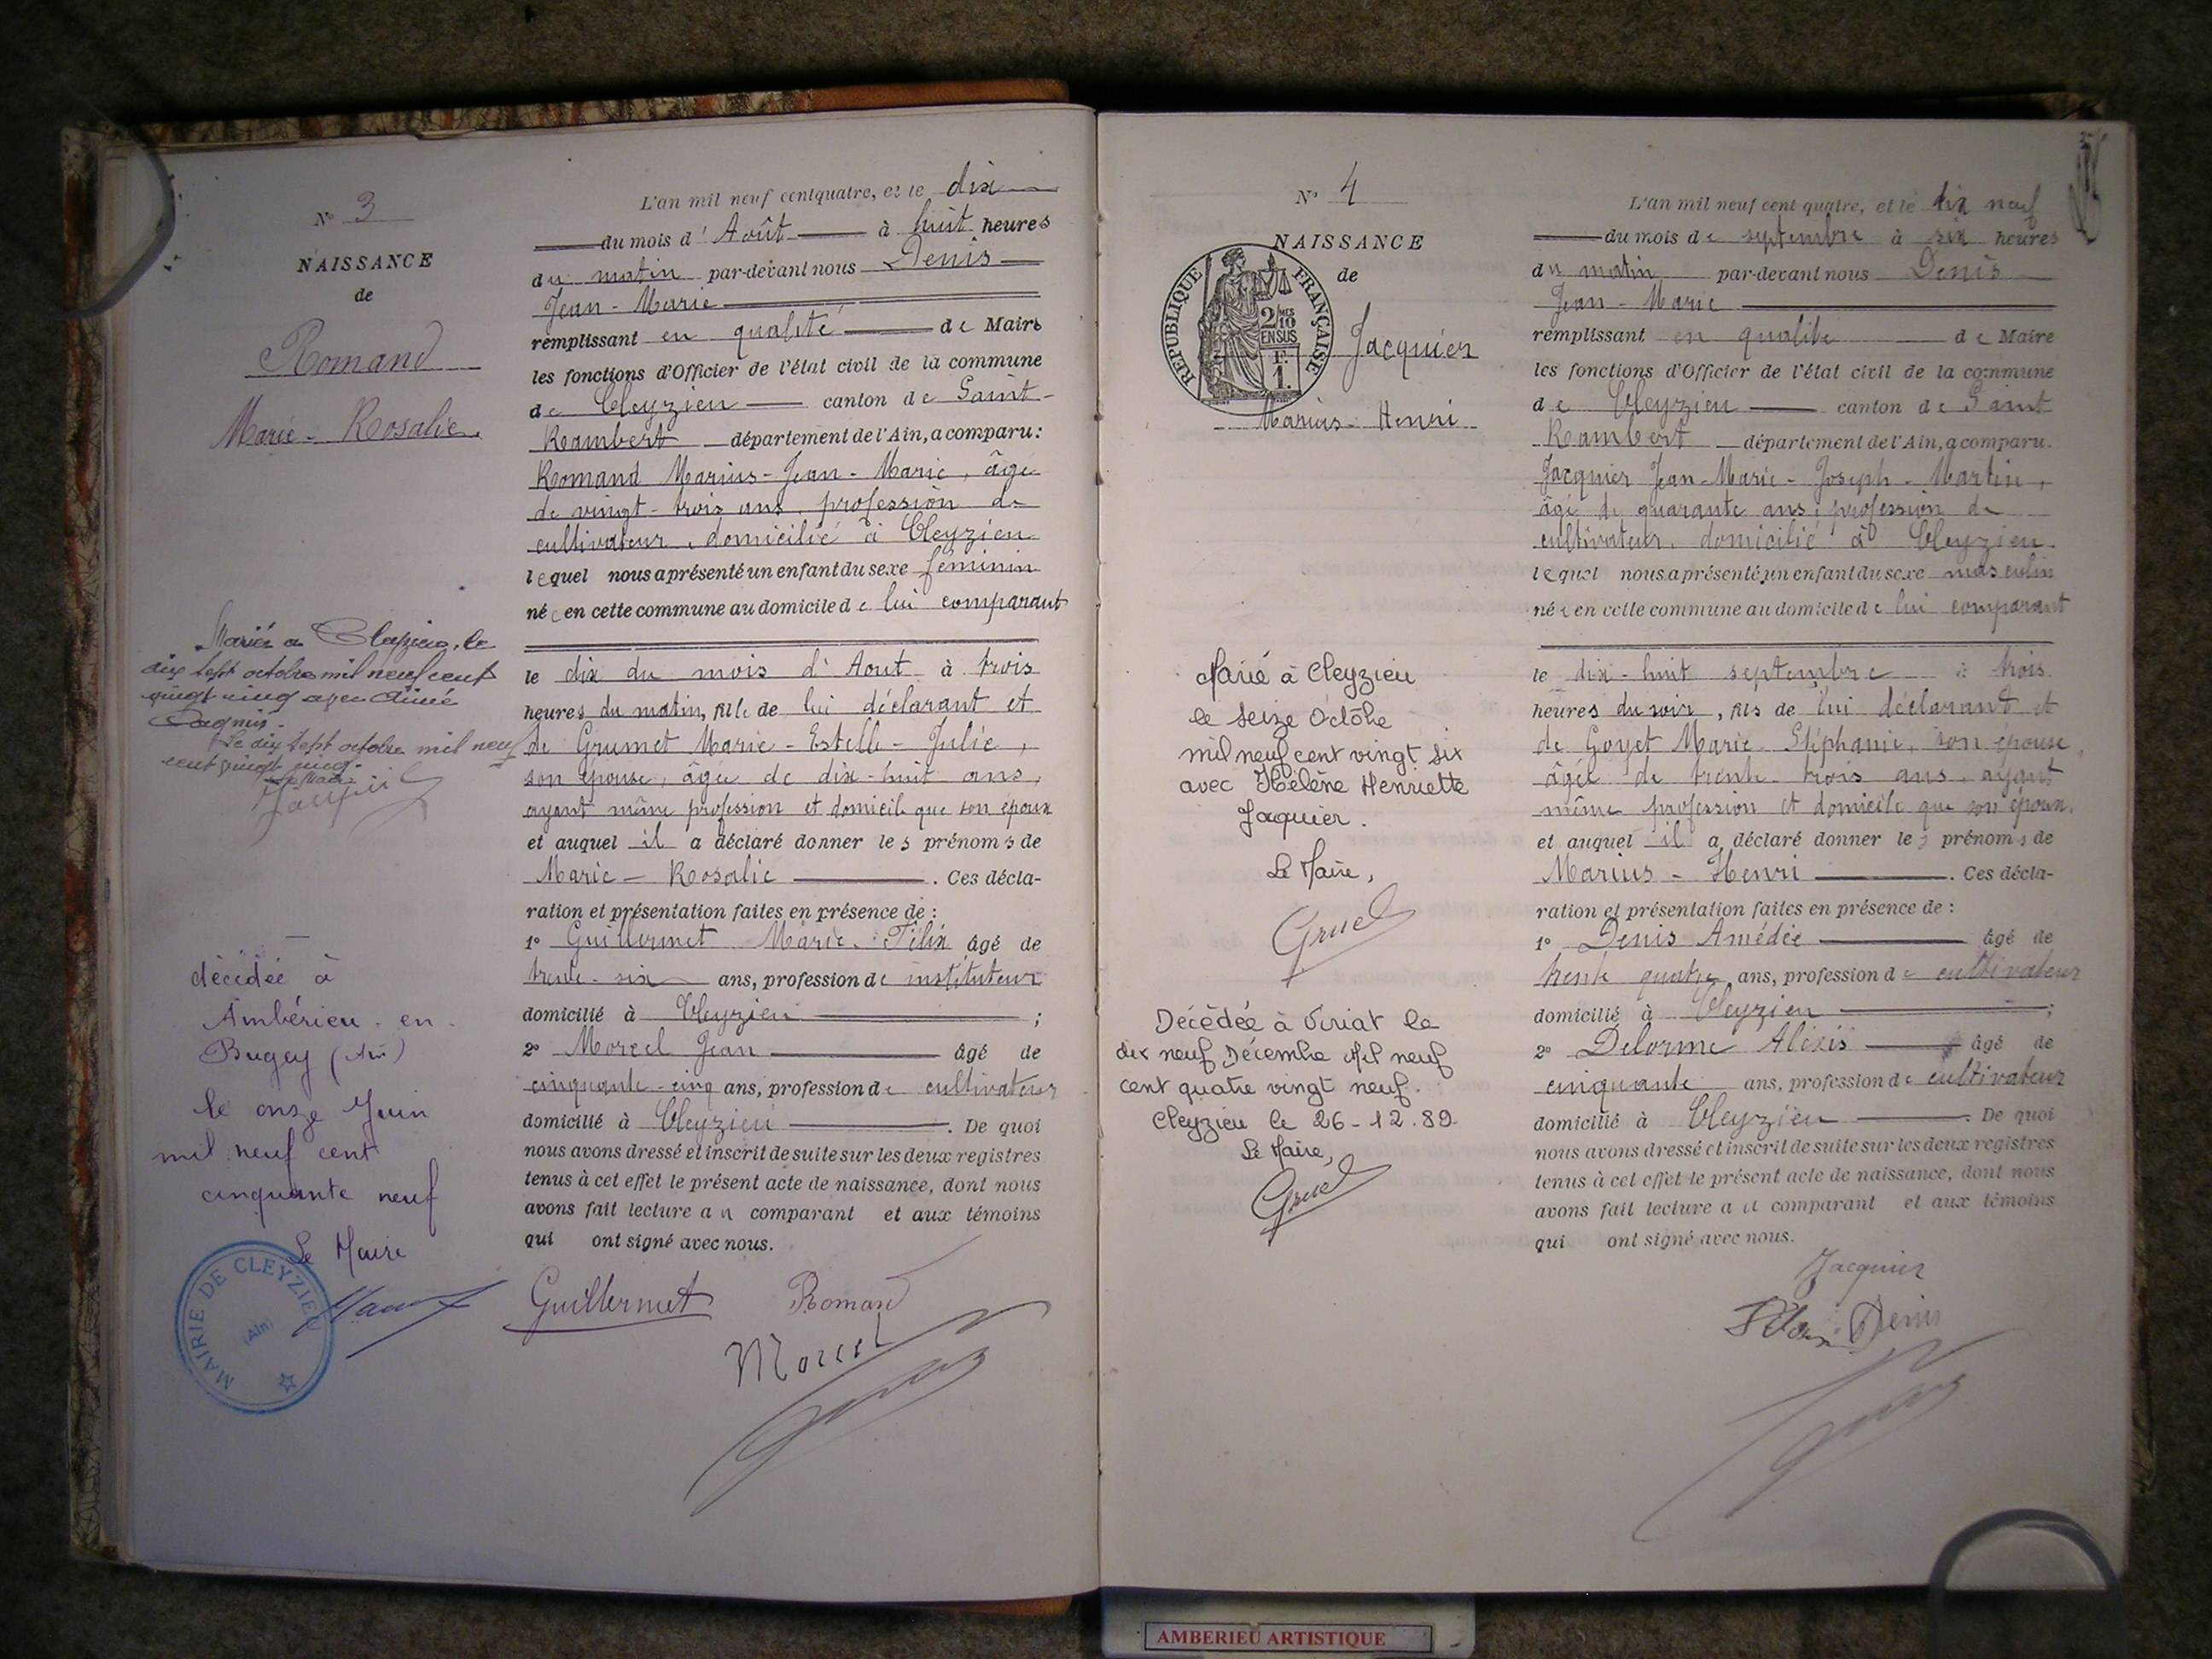 N° 3
NAISSANCE
de
Romand
Marie - Rosalie
Mariée à Cleyzieu, le
dix sept octobre mil neuf cent
vingt cinq avec Aimé
Le dix sept octobre mil neuf
cent vingt cinq.
Le Maire
décédée à
Ambérieu - en -
Bugey (Ain)
le onze Juin
mil neuf cent
cinquante neuf
Le Maire
MAIRIE DE CLEYZIEU
(Ain)
L'an mil neuf cent quatre, et le dix
du mois d'Août à huit heures
du matin par-devant nous Denis
Jean - Marie
remplissant en qualité de Maire
les fonctions d'Officier de l'état civil de la commune
de Cleyzieu canton de Saint-
Rambert département de l'Ain, a comparu:
Romand Marius - Jean - Marie, âgé
de vingt - trois ans, profession de
cultivateur, domicilié à Cleyzieu
lequel nous a présenté un enfant du sexe féminin
née en cette commune au domicile de lui comparant
le dix du mois d'Aout à trois
heures du matin, fille de lui déclarant et
de Grumet Marie - Estelle - Julie,
son épouse, âgée de dix-huit ans,
ayant même profession et domicile que son époux
et auquel il a déclaré donner les prénoms de
Marie - Rosalie. Ces décla-
ration et présentation faites en présence de :
1° Guillermet Marie - Félix âgé de
trente - six ans, profession de instituteur
domicilié à Cleyzieu ;
2° Morcel Jean âgé de
cinquante - cinq ans, profession de cultivateur
domicilié à Cleyzieu. De quoi
nous avons dressé et inscrit de suite sur les deux registres
tenus à cet effet le présent acte de naissance, dont nous
avons fait lecture au comparant et aux témoins
qui ont signé avec nous.
Guillermet Romand
Morcel
N° 4
NAISSANCE
de
RÉPUBLIQUE FRANÇAISE
2/10 MES
EN SUS
F.
1.
Jacquier
Marius - Henri
Marié à Cleyzieu
le seize Octobre
mil neuf cent vingt six
avec Hélène Henriette
Jaquier.
Le Maire,
Gruel
Décédée à Viriat le
dix neuf Décembre Mil neuf
cent quatre vingt neuf.
Cleyzieu le 26-12.89
Le Maire,
Gruel
L'an mil neuf cent quatre, et le dix neuf
du mois de septembre à six heures
du matin par-devant nous Denis
Jean - Marie
remplissant en qualité de Maire
les fonctions d'Officier de l'état civil de la commune
de Cleyzieu canton de Saint
Rambert département de l'Ain, a comparu.
Jacquier Jean-Marie - Joseph - Martin,
âgé de quarante ans, profession de
cultivateur, domicilié à Cleyzieu
lequel nous a présenté un enfant du sexe masculin
né en cette commune au domicile de lui comparant
le dix-huit septembre à trois
heures du soir, fils de lui déclarant et
de Goyet Marie - Stéphanie, son épouse,
âgée de trente - trois ans, ayant
même profession et domicile que son époux.
et auquel il a déclaré donner les prénoms de
Marius - Henri. Ces décla-
ration et présentation faites en présence de :
1° Denis Amédée âgé de
trente quatre ans, profession de cultivateur
domicilié à Cleyzieu ;
2° Delorme Alexis âgé de
cinquante ans, profession de cultivateur
domicilié à Cleyzieu. De quoi
nous avons dressé et inscrit de suite sur les deux registres
tenus à cet effet le présent acte de naissance, dont nous
avons fait lecture au comparant et aux témoins
qui ont signé avec nous.
Jacquier
Denis
AMBERIEU ARTISTIQUE